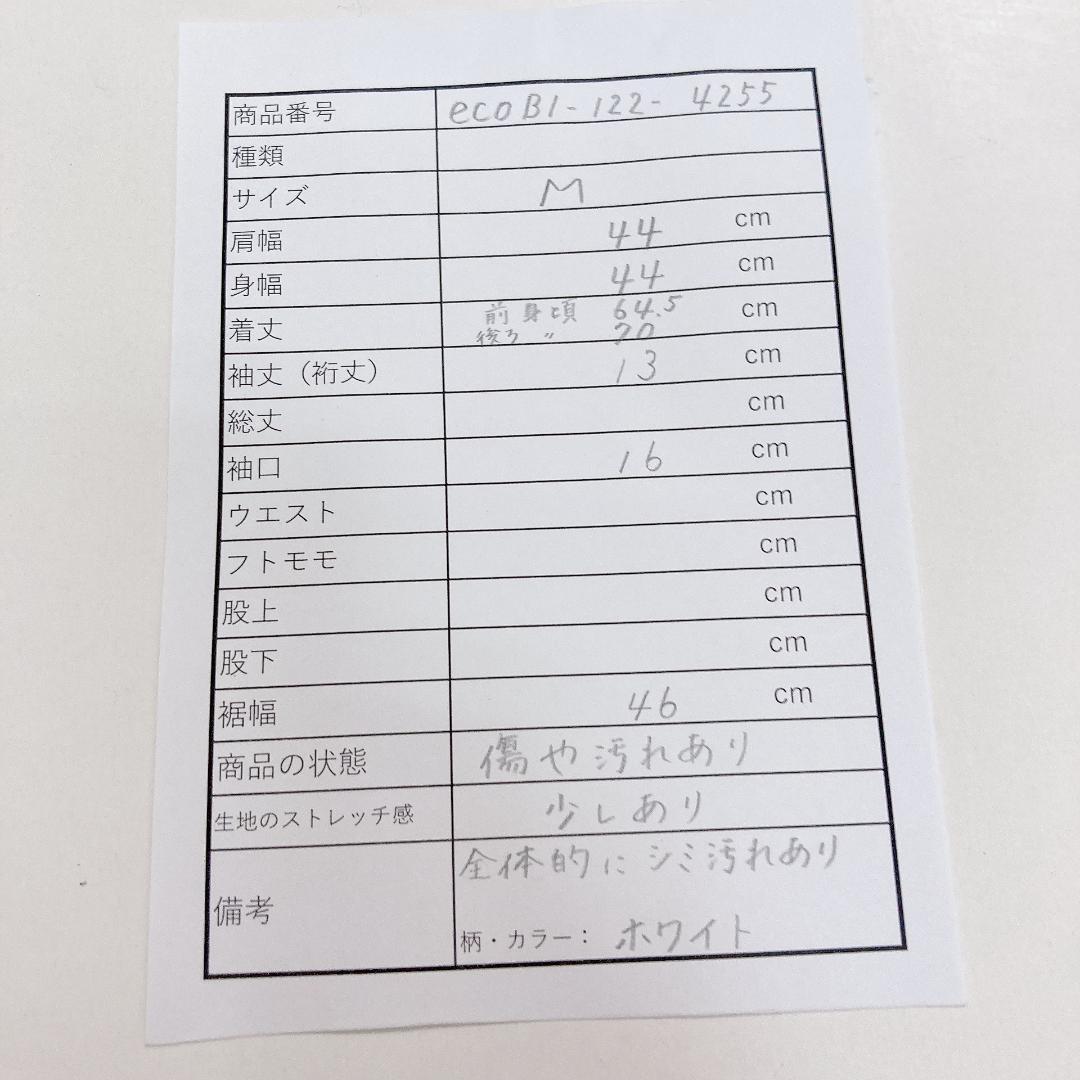 商品番号 ecoB1-122-4255
種類
サイズ M
肩幅 44 cm
身幅 44 cm
着丈 前身頃 64.5 cm
後ろ 〃 70
袖丈（裄丈） 13 cm
総丈 cm
袖口 16 cm
ウエスト cm
フトモモ cm
股上 cm
股下 cm
裾幅 46 cm
商品の状態 傷や汚れあり
生地のストレッチ感 少しあり
備考 全体的にシミ汚れあり
柄・カラー： ホワイト